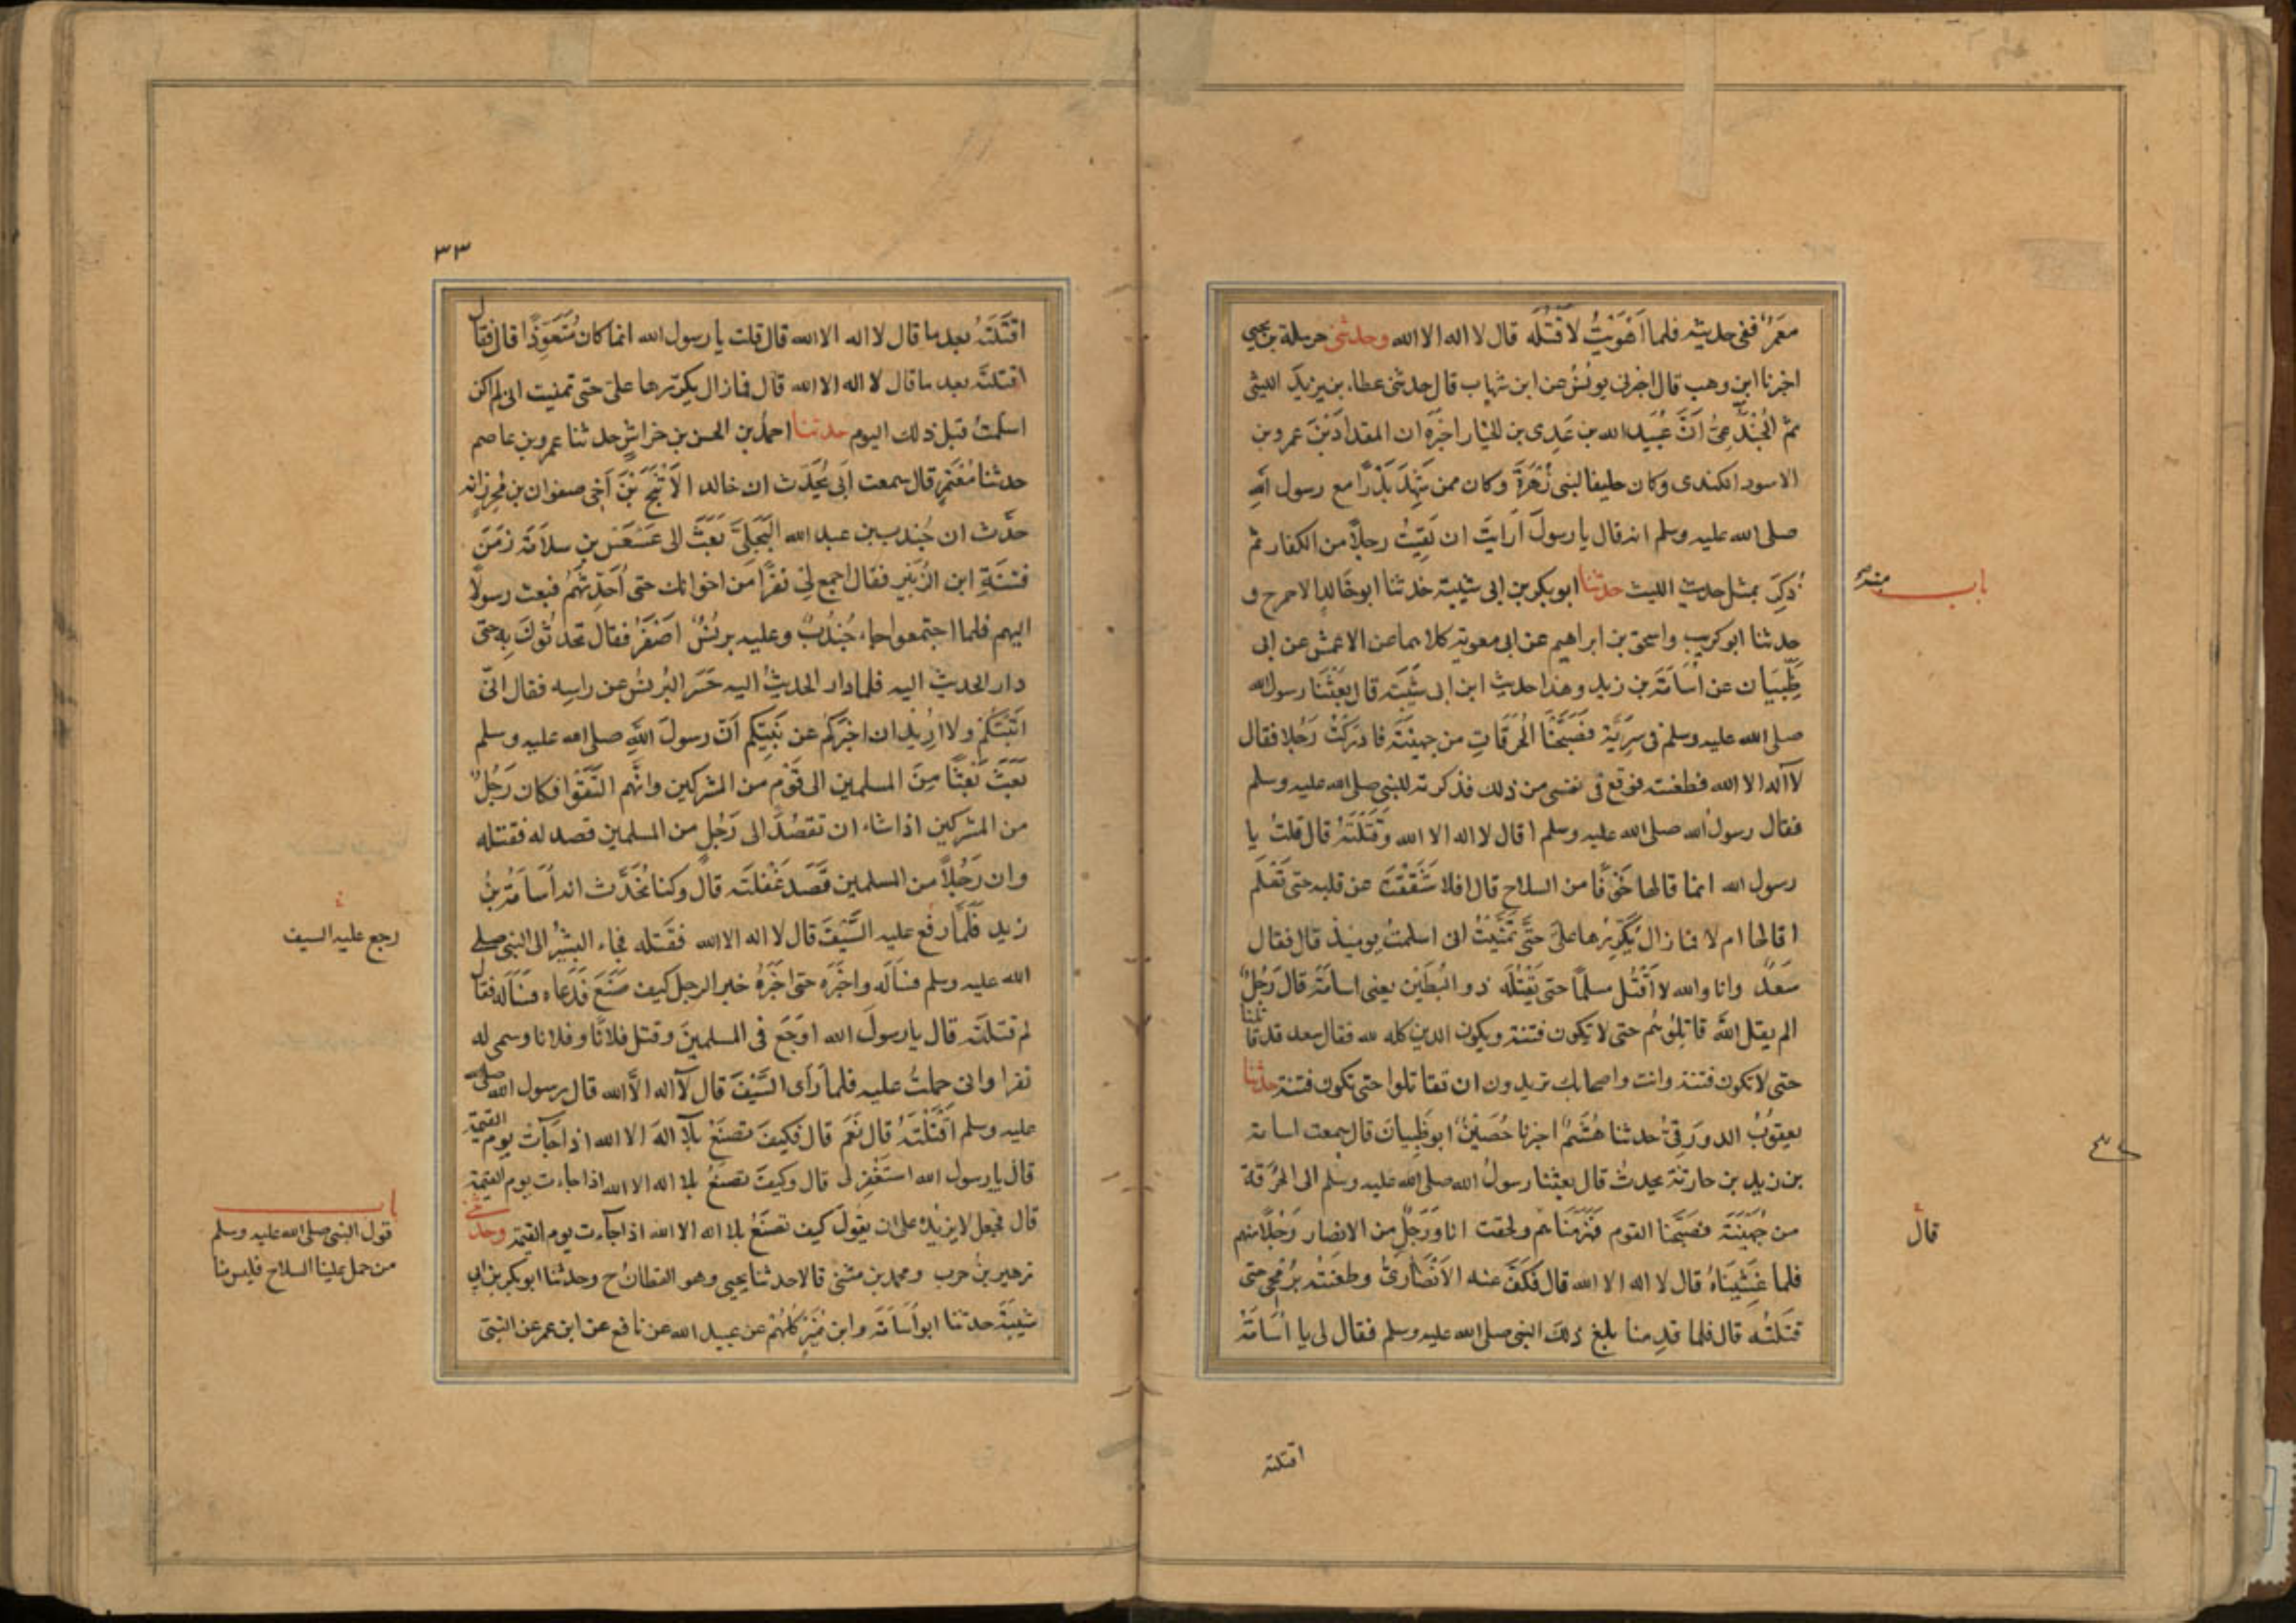 معمر ففى حديثه فلما اهويت لاقتله قال لا اله الا الله وحدثنى حرملة بن يحيى
اخبرنا ابن وهب قال اخبرنى يونس عن ابن شهاب قال حدثنى عطاء بن يزيد الليثى
ثم الجندعى ان عبيد الله بن عدى بن الخيار اخبره ان المقداد بن عمرو بن
الاسود الكندى وكان حليفا لبنى زهرة وكان ممن شهد بدرا مع رسول الله
صلى الله عليه وسلم انه قال يا رسول ارايت ان لقيت رجلا من الكفار ثم
ذكر بمثل حديث الليث حدثنا ابو بكر بن ابى شيبة حدثنا ابو خالد الاحمر ح و
باب منه
حدثنا ابو كريب واسحق بن ابراهيم عن ابى معوية كلاهما عن الاعمش عن ابى
ظبيان عن اسامة بن زيد وهذا حديث ابن ابى شيبة قال بعثنا رسول الله
صلى الله عليه وسلم فى سرية فصبحنا الحرقات من جهينة فادركت رجلا فقال
لا اله الا الله فطعنته فوقع فى نفسى من ذلك فذكرته للنبى صلى الله عليه وسلم
فقال رسول الله صلى الله عليه وسلم اقال لا اله الا الله وقتلته قال قلت يا
رسول الله انما قالها خوفا من السلاح قال افلا شققت عن قلبه حتى تعلم
اقالها ام لا فما زال يكررها على حتى تمنيت انى اسلمت يومئذ قال فقال
سعد وانا والله لا اقتل مسلما حتى يقتله ذو البطين يعنى اسامة قال رجل
الم يقل الله قاتلوهم حتى لا تكون فتنة ويكون الدين كله لله فقال سعد قد قاتلنا
حتى لا تكون فتنة وانت واصحابك تريدون ان تقاتلوا حتى تكون فتنة حدثنا
يعقوب الدورقى حدثنا هشيم اخبرنا حصين ابو ظبيان قال سمعت اسامة
بن زيد بن حارثة يحدث قال بعثنا رسول الله صلى الله عليه وسلم الى الحرقة
من جهينة فصبحنا القوم فهزمناهم ولحقت انا ورجل من الانصار رجلا منهم
قال
فلما غشيناه قال لا اله الا الله قال فكف عنه الانصارى وطعنته برمحى حتى
قتلته قال فلما قدمنا بلغ ذلك النبى صلى الله عليه وسلم فقال لى يا اسامة
اقتلته
٣٣
اقتلته بعد ما قال لا اله الا الله قال قلت يا رسول الله انما كان متعوذا قال فقال
اقتلته بعد ما قال لا اله الا الله قال فما زال يكررها على حتى تمنيت انى لم اكن
اسلمت قبل ذلك اليوم حدثنا احمد بن الحسن بن خراش حدثنا عمرو بن عاصم
حدثنا معتمر قال سمعت ابى يحدث ان خالد الاثبج بن اخى صفوان بن محرز انه
حدث ان جندب بن عبد الله البجلى بعث الى عسعس بن سلامة زمن
فتنة ابن الزبير فقال اجمع لى نفرا من اخوانك حتى احدثهم فبعث رسولا
اليهم فلما اجتمعوا جاء جندب وعليه برنس اصفر فقال تحدثوك به حتى
دار الحديث اليه فلما دار الحديث اليه حسر البرنس عن راسه فقال انى
اتيتكم ولا اريد ان اخبركم عن نبيكم ان رسول الله صلى الله عليه وسلم
بعث بعثا من المسلمين الى قوم من المشركين وانهم التقوا فكان رجل
من المشركين اذا شاء ان تقصد الى رجل من المسلمين قصد له فقتله
وان رجلا من المسلمين قصد غفلته قال وكنا نحدث انه اسامة بن
زيد فلما رفع عليه السيف قال لا اله الا الله فقتله فجاء البشير الى النبى صلى
رجع عليه السيف
الله عليه وسلم فساله واخبره حتى اخبره خبر الرجل كيف صنع فدعاه فساله فقال
لم قتلته قال يا رسول الله اوجع فى المسلمين وقتل فلانا وفلانا وسمى له
نفرا وانى حملت عليه فلما راى السيف قال لا اله الا الله قال رسول الله صلى
عليه وسلم اقتلته قال نعم قال فكيف تصنع بلا اله الا الله اذا جات يوم القيمة
قال يا رسول الله استغفر لى قال وكيف تصنع بلا اله الا الله اذا جاءت يوم القيمة
قال فجعل لا يزيده على ان يقول كيف تصنع بلا اله الا الله اذا جاءت يوم القيمة وحدثنى
باب
قول النبى صلى الله عليه وسلم
من حمل علينا السلاح فليس منا
زهير بن حرب ومحمد بن مثنى قالا حدثنا يحيى وهو القطان ح وحدثنا ابو بكر بن ابى
شيبة حدثنا ابو اسامة وابن نمير كلهم عن عبيد الله عن نافع عن ابن عمر عن النبى